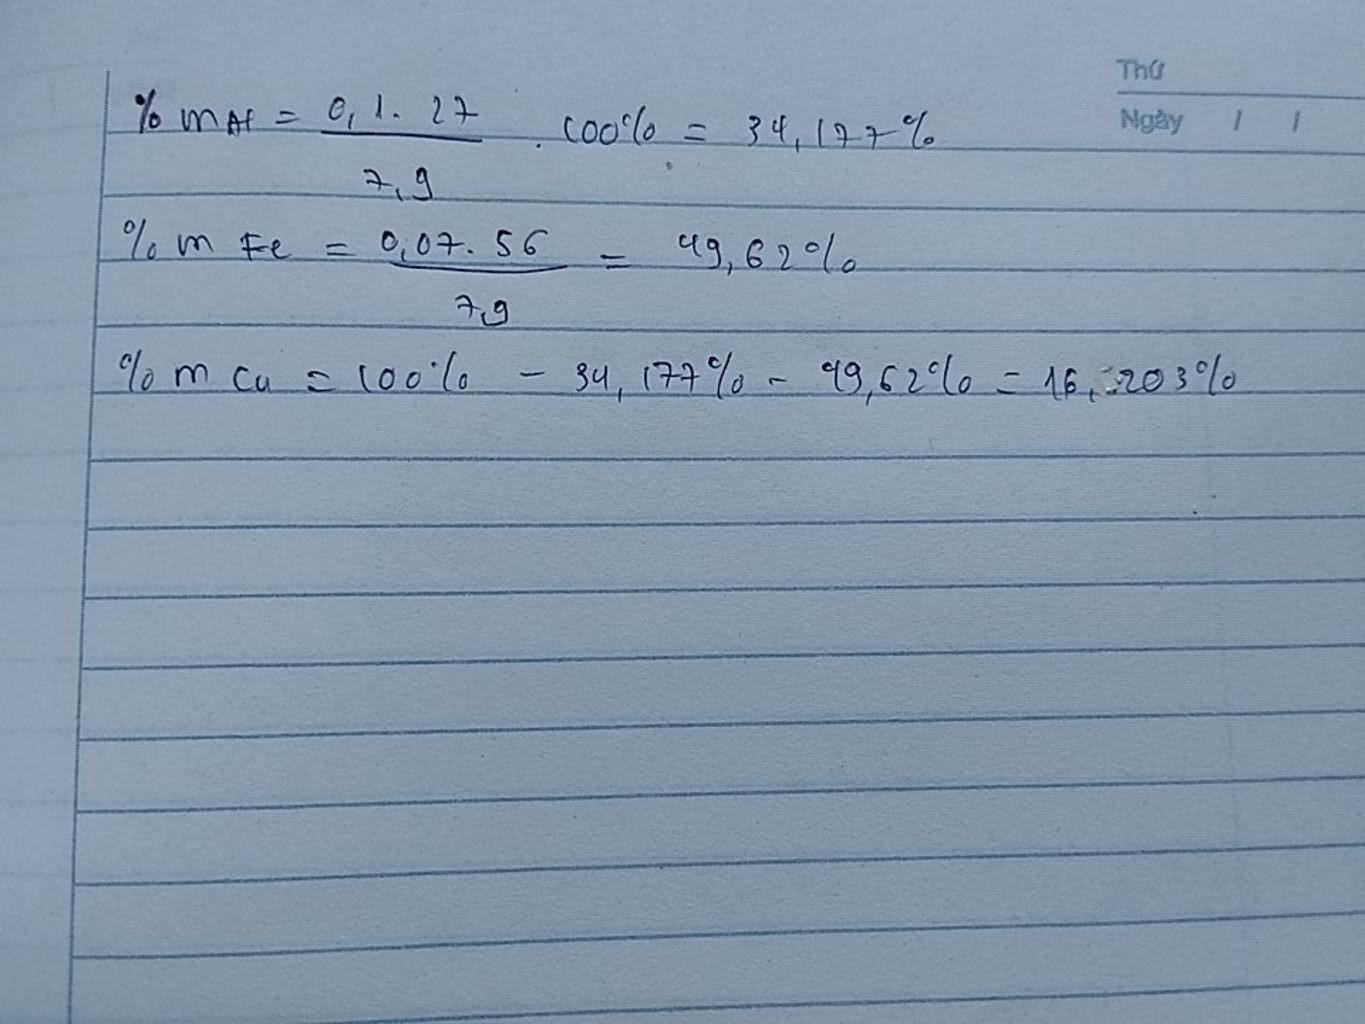 Thứ
Ngày / /
% m Al = 0,1. 27 / 7,9 . 100% = 34,177%
% m Fe = 0,07. 56 / 7,9 = 49,62%
% m Cu = 100% - 34,177% - 49,62% = 16,203%